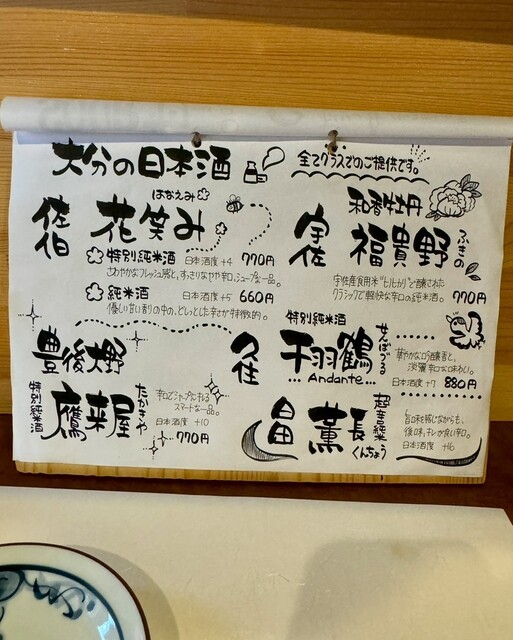 大分の日本酒
全てグラスでのご提供です。
佐伯
はなえみ
花笑み
特別純米酒 日本酒度+4 770円
さわやかなフレッシュ感と、すっきりなやや辛口、シャープな一品。
純米酒 日本酒度+5 660円
優しい甘い香りの中の、どしっとした辛さが特徴的。
宇佐
和香牡丹
福貴野
ふきの
宇佐産食用米"ヒノヒカリ"で醸された
クラシックで軽快な辛口の純米酒。 770円
豊後大野
特別純米酒
鷹来屋
たかきや
辛口でシャープにキレる
スマートな一品。
日本酒度 +10
770円
久住
特別純米酒
千羽鶴
せんばづる
...Andante...
華やかな吟醸香と、
淡麗辛口な味わい。
日本酒度+7 880円
日田
薫長
くんちょう
超辛純米
旨味を残しながらも、
後味、キレが良い辛口。
日本酒度 +16